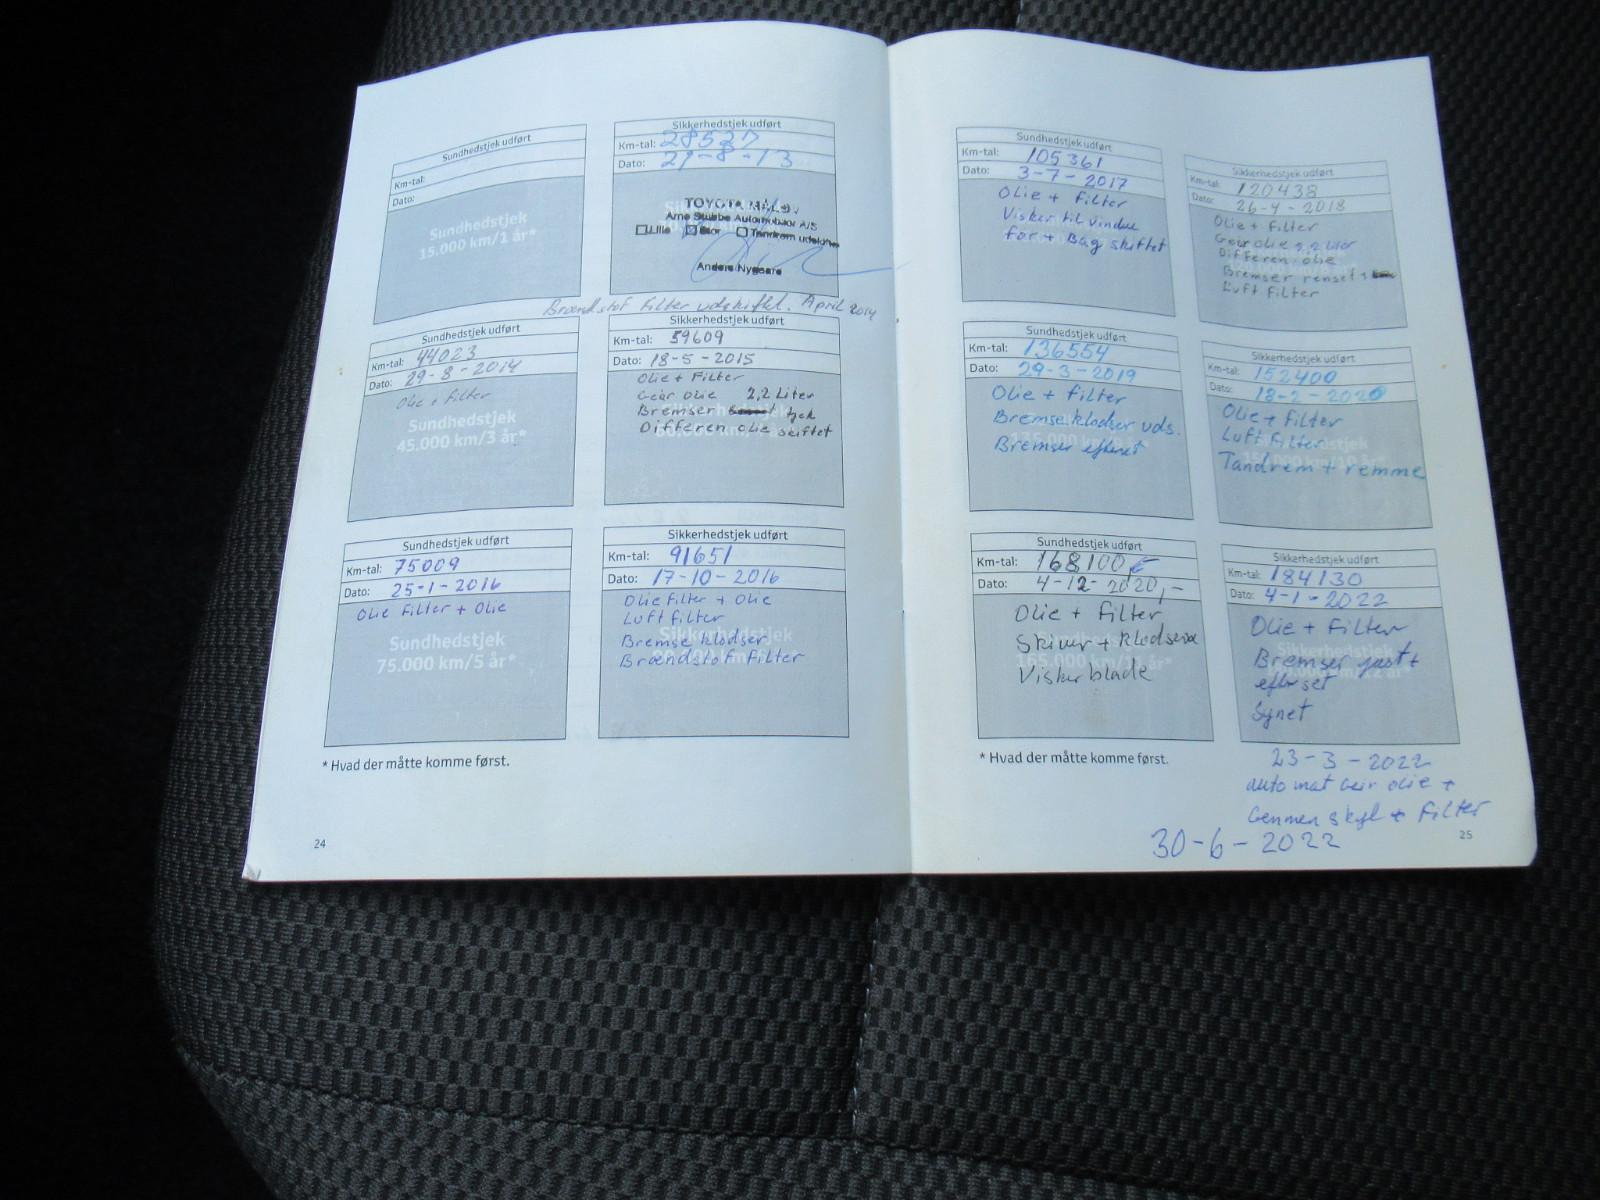 Sundhedstjek udført
Km-tal:
Dato:
Sundhedstjek
15.000 km/1 år*
Sikkerhedstjek udført
Km-tal: 28527
Dato: 29-8-13
TOYOTA
Arne Stubbe Automobiler A/S
Lille Stor Tandrem udskiftet
Anders Nygaard
Brændstof Filter udskiftet. April 2014
Sundhedstjek udført
Km-tal: 44023
Dato: 29-8-2014
Olie + Filter
Sundhedstjek
45.000 km/3 år*
Sikkerhedstjek udført
Km-tal: 59609
Dato: 18-5-2015
Olie + Filter
Gear olie 2,2 Liter
Bremser tjek
Differen olie skiftet
Sundhedstjek udført
Km-tal: 75009
Dato: 25-1-2016
Olie Filter + Olie
Sundhedstjek
75.000 km/5 år*
Sikkerhedstjek udført
Km-tal: 91651
Dato: 17-10-2016
Olie Filter + Olie
Luft Filter
Bremse klodser
Brændstof Filter
* Hvad der måtte komme først.
24
Sundhedstjek udført
Km-tal: 105361
Dato: 3-7-2017
Olie + Filter
Visker til vindue
for + Bag skiftet
Sikkerhedstjek udført
Km-tal: 120438
Dato: 26-4-2018
Olie + Filter
Gear olie 2,2 Liter
Differen olie
Bremser renset +
Luft Filter
Sundhedstjek udført
Km-tal: 136554
Dato: 29-3-2019
Olie + Filter
Bremseklodser uds.
Bremser efterset
Sikkerhedstjek udført
Km-tal: 152400
Dato: 18-2-2020
Olie + Filter
Luft Filter
Tandrem + remme
Sundhedstjek udført
Km-tal: 168100
Dato: 4-12-2020,-
Olie + Filter
Skiver + klodser
Sundhedstjek
165.000 km/11 år*
Viskerblade
Sikkerhedstjek udført
Km-tal: 184130
Dato: 4-1-2022
Olie + Filter
Bremser just +
efterset
Synet
* Hvad der måtte komme først.
23-3-2022
automat Geir olie +
Gennem skyl + Filter
30-6-2022
25